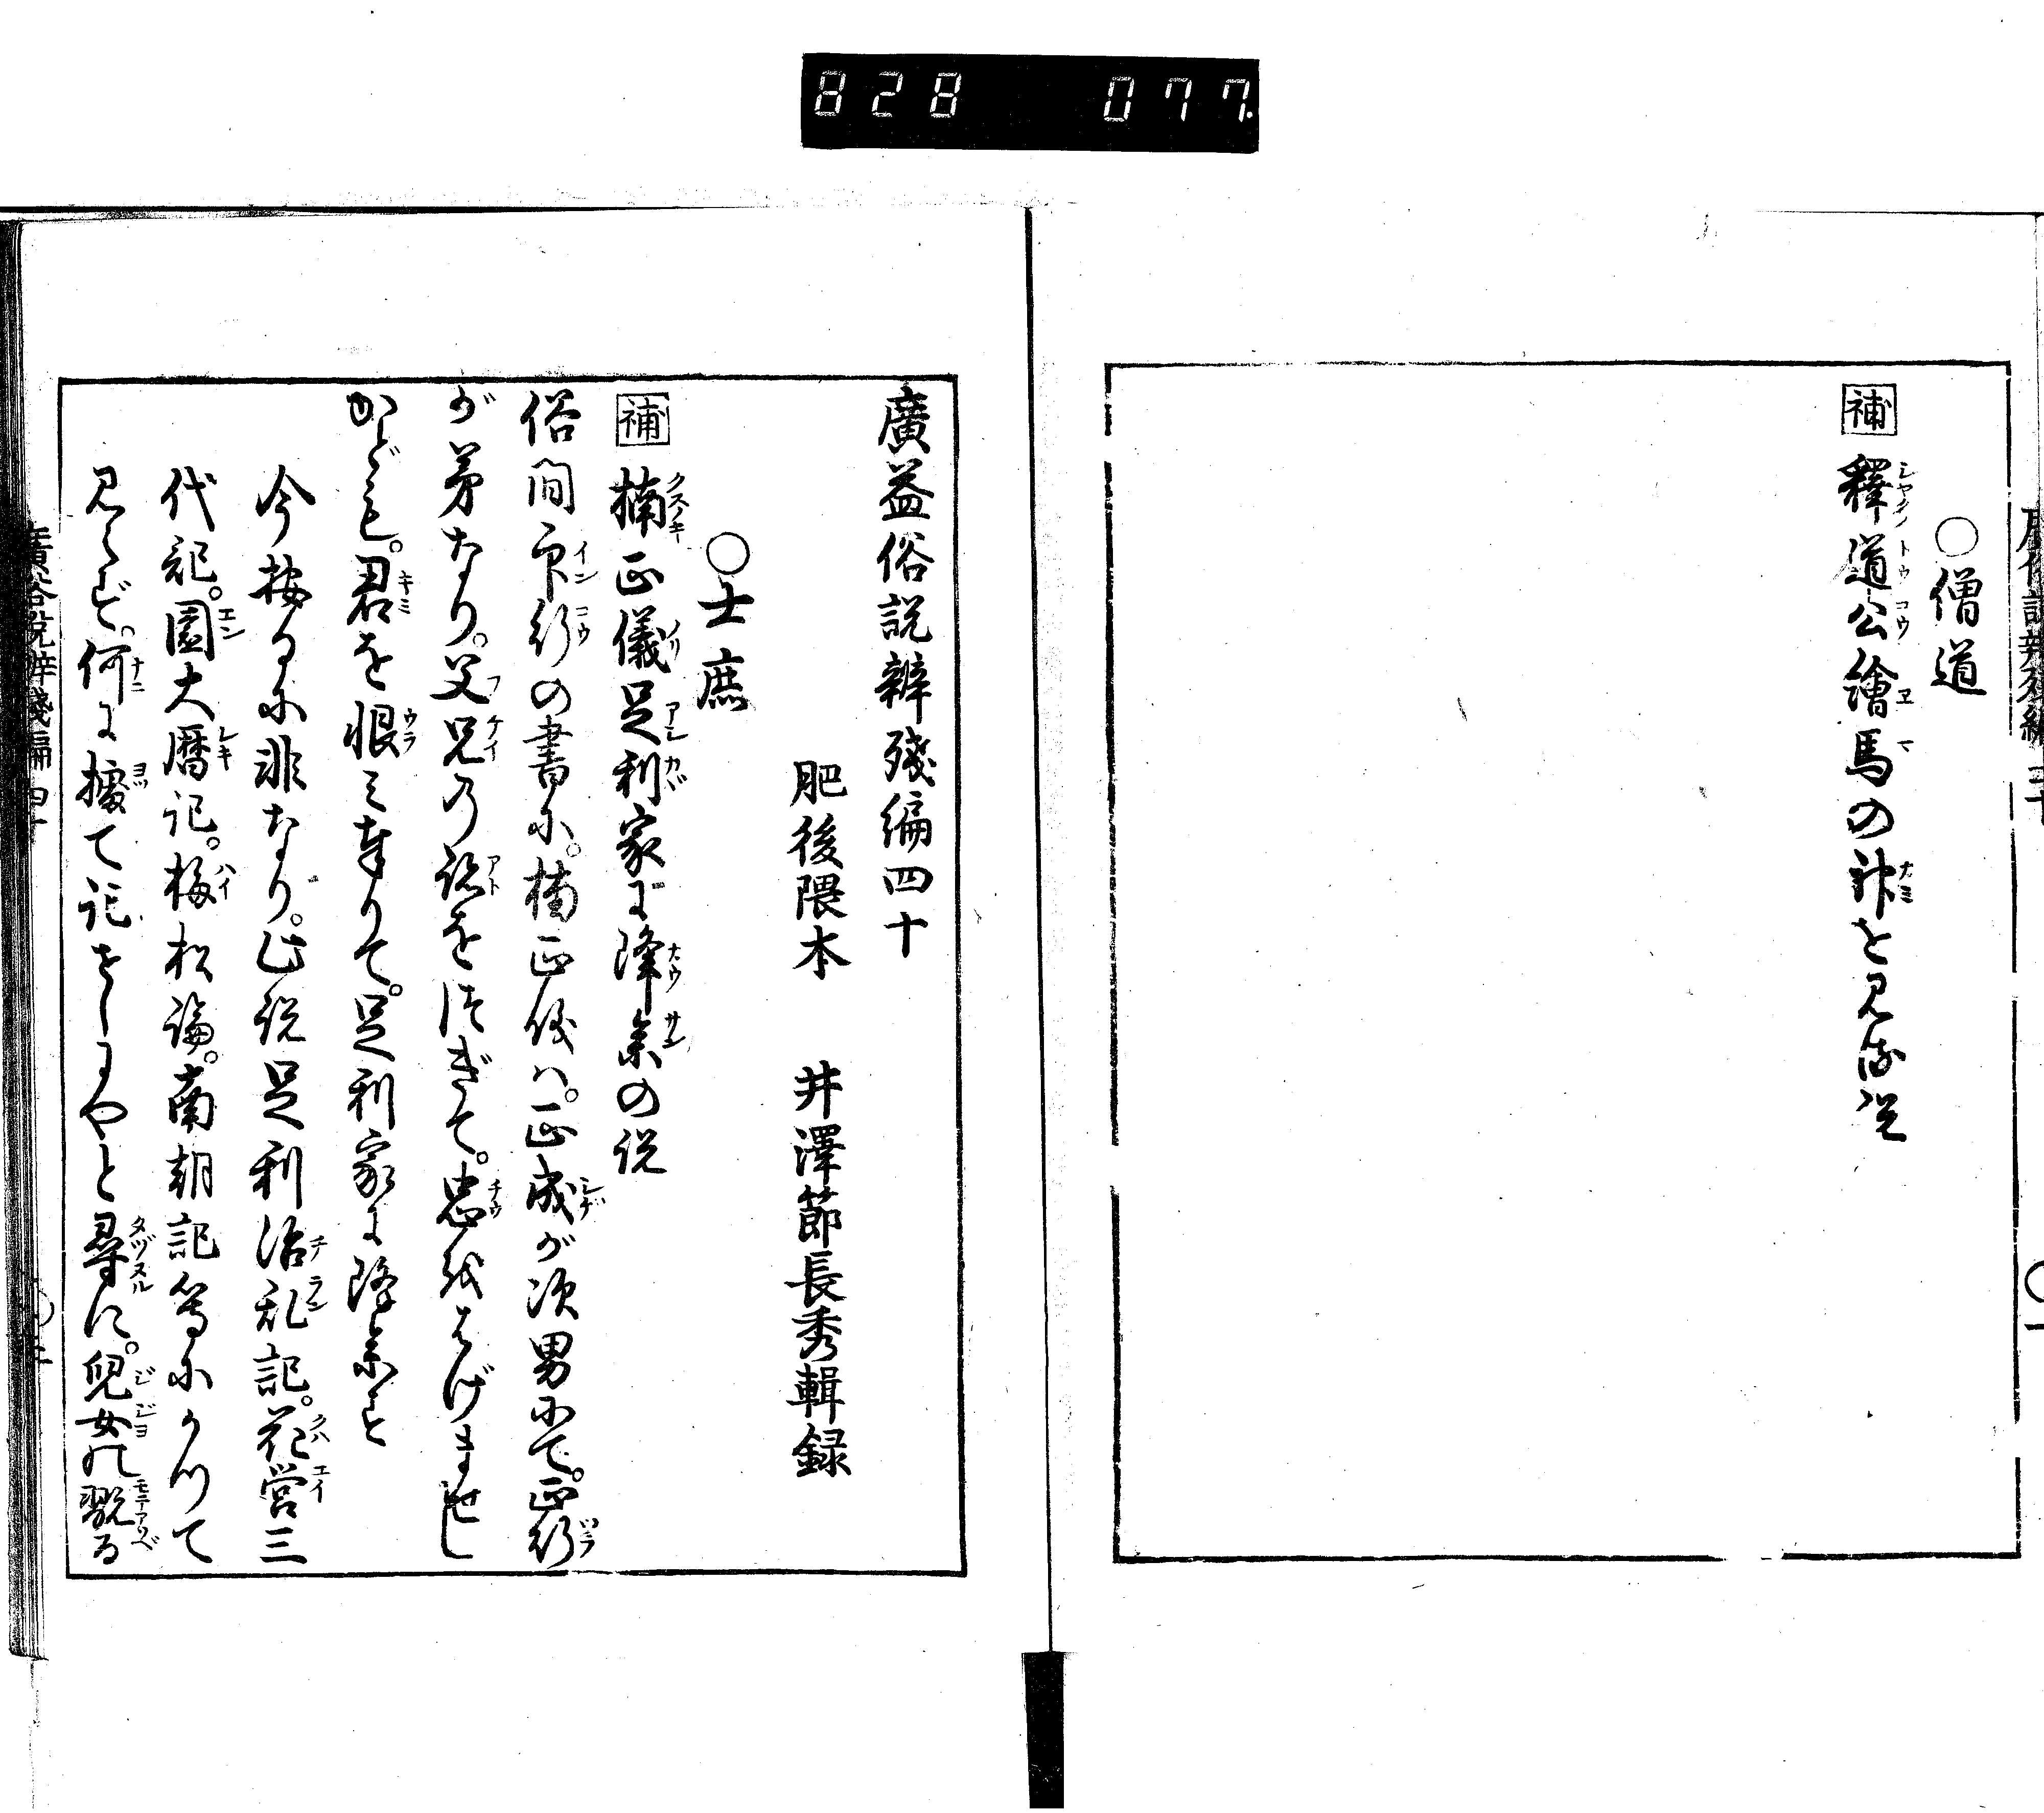 828 077.
○僧道
補 釋道公繪馬の神を見る説
廣益俗説辨殘編四十
肥後隈本 井澤節長秀輯録
○士庶
補 楠正儀足利家に降参の説
俗間印行の書に。楠正儀ハ。正成が次男にて。正行
が弟なり。父兄の跡をつぎて。忠をはげませし
かども。君を恨ミ奉りて。足利家に降参すと
今按るに非なり。此説足利治乱記。花営三
代記。園大暦記。梅松論。南朝記等にかつて
見えず。何に據て記せしにやと尋るに。兒女の翫